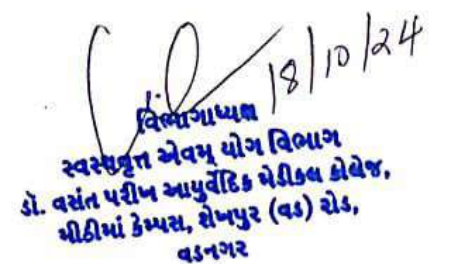 18/10/24
વિભાગાધ્યક્ષ
સ્વસ્થવૃત્ત એવમ્ યોગ વિભાગ
ડૉ. વસંત પરીખ આયુર્વેદિક મેડીકલ કોલેજ,
મીઠીમાં કેમ્પસ, શેખપુર (વડ) રોડ,
વડનગર